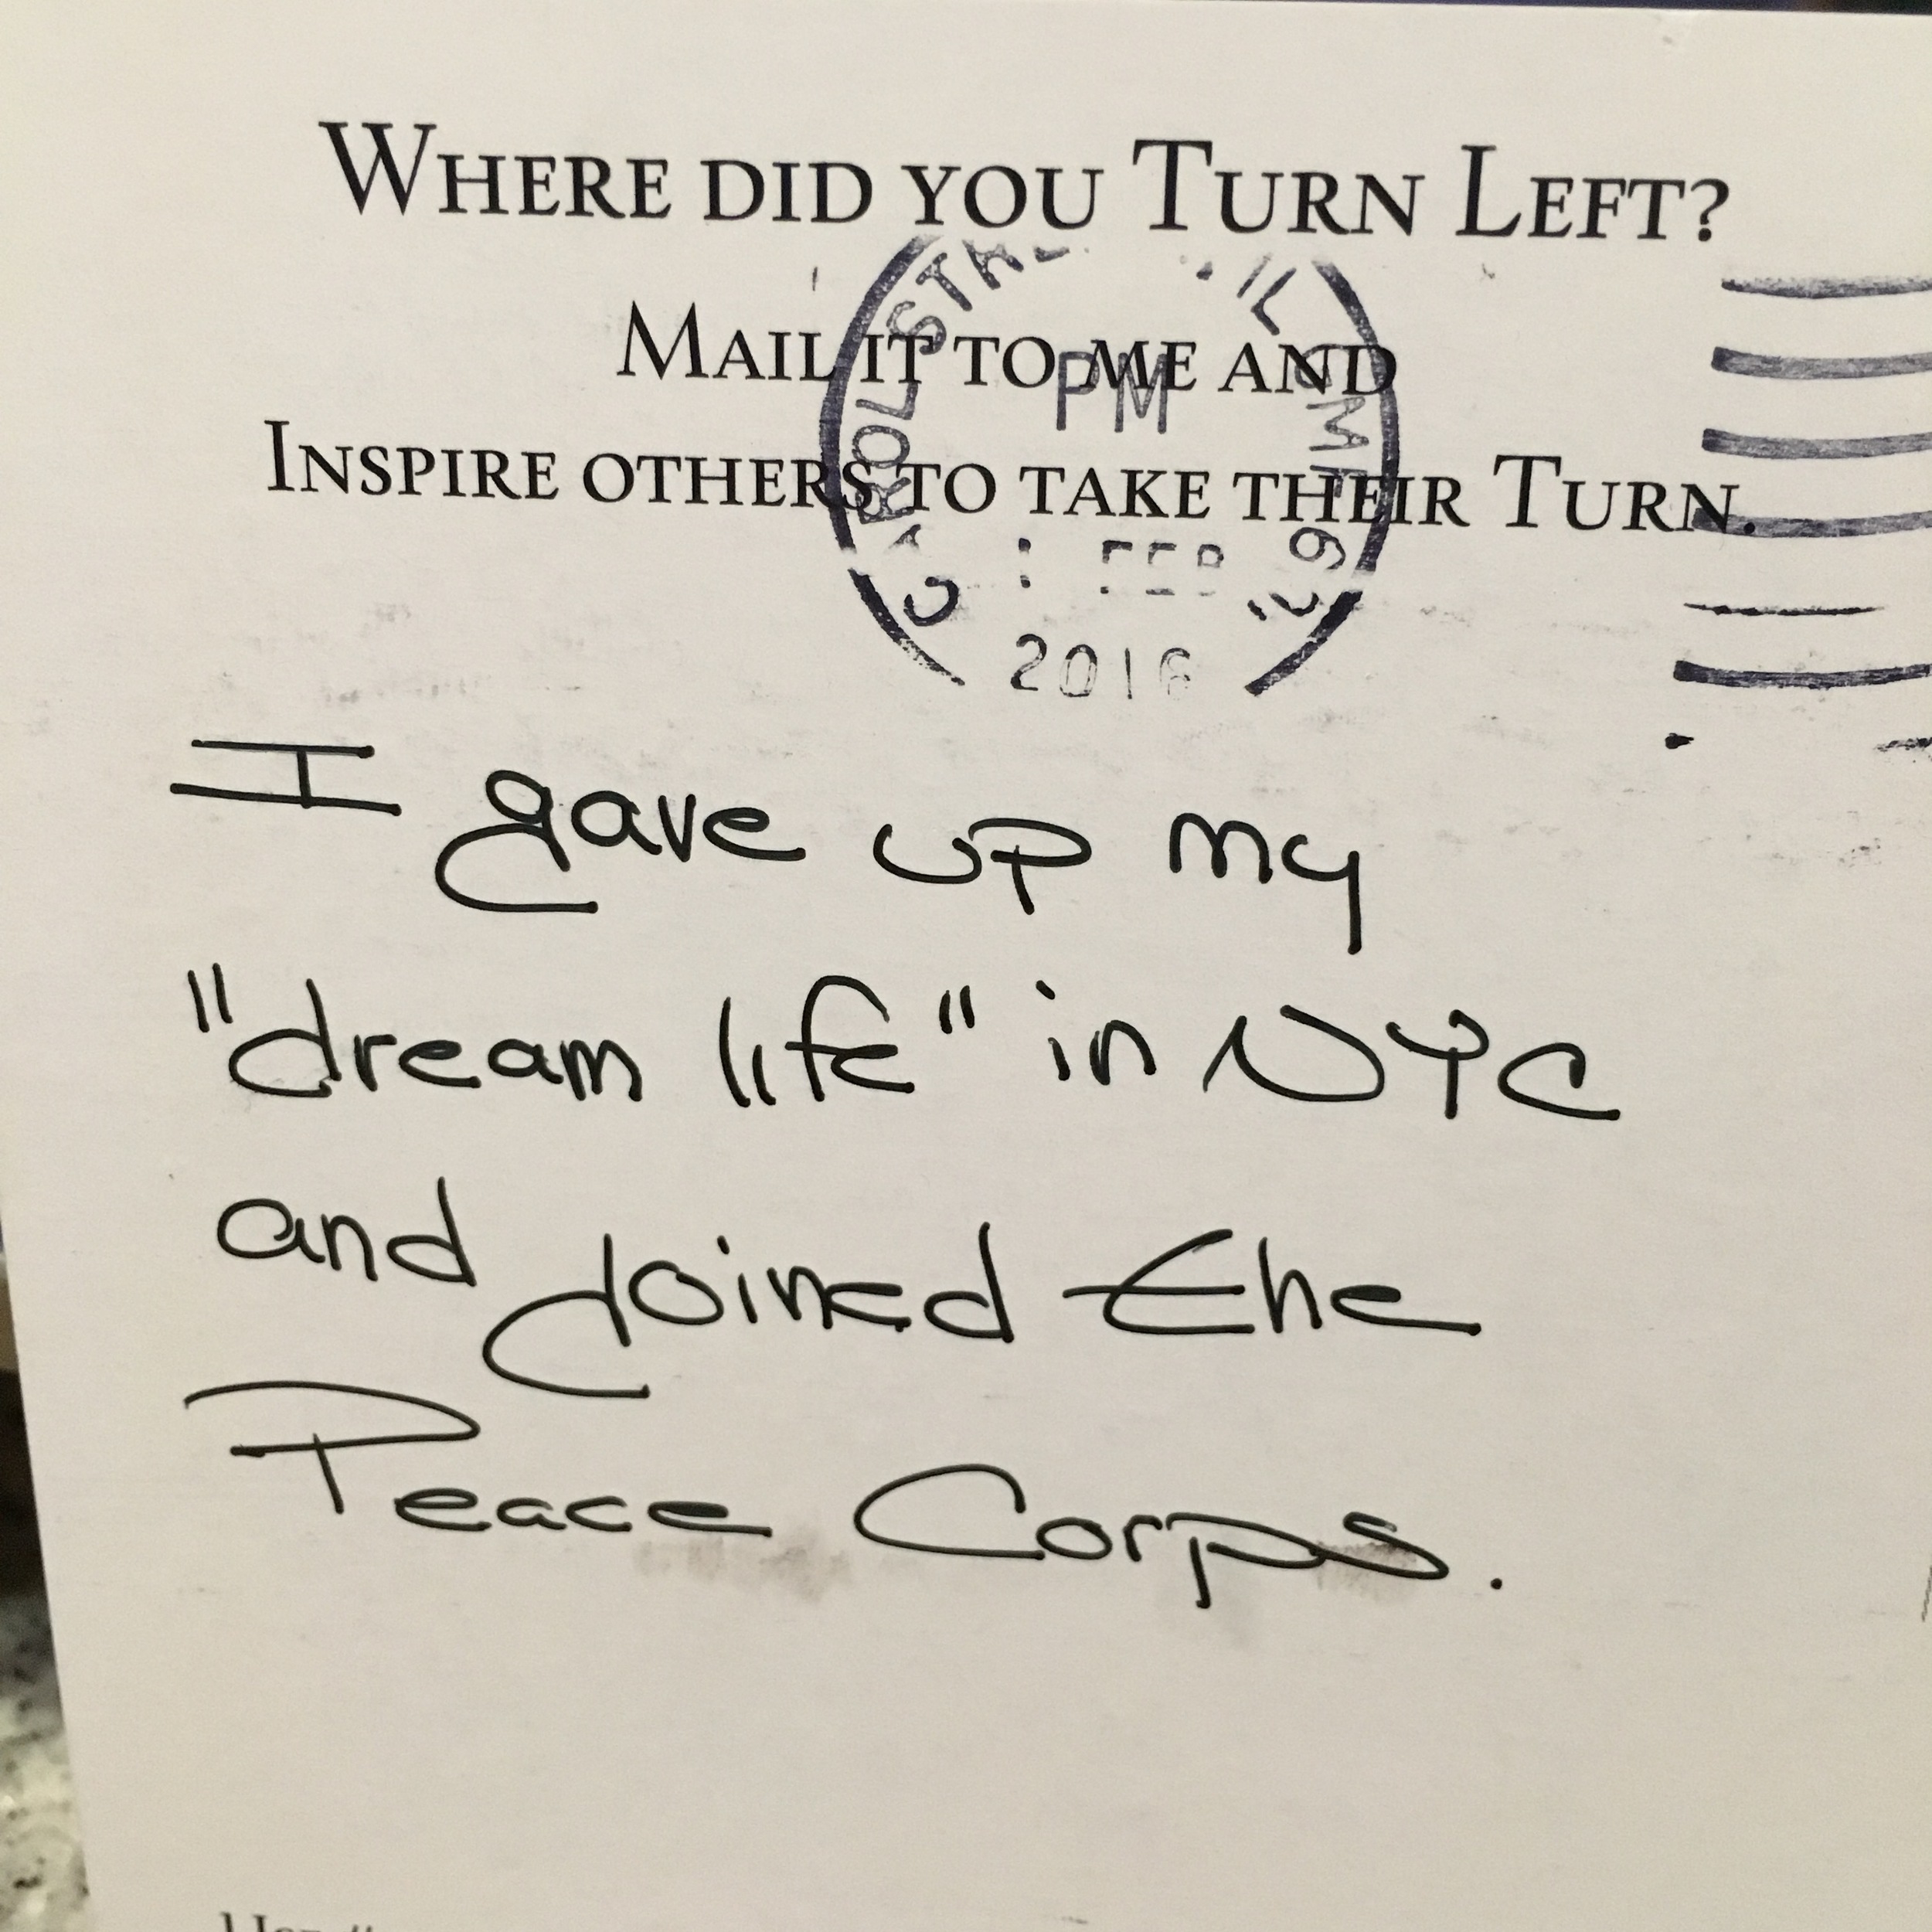 WHERE DID YOU TURN LEFT?
MAIL IT TO ME AND
INSPIRE OTHERS TO TAKE THEIR TURN.
PM
FEB
2016
I gave up my
"dream life" in NYC
and joined the
Peace Corps.